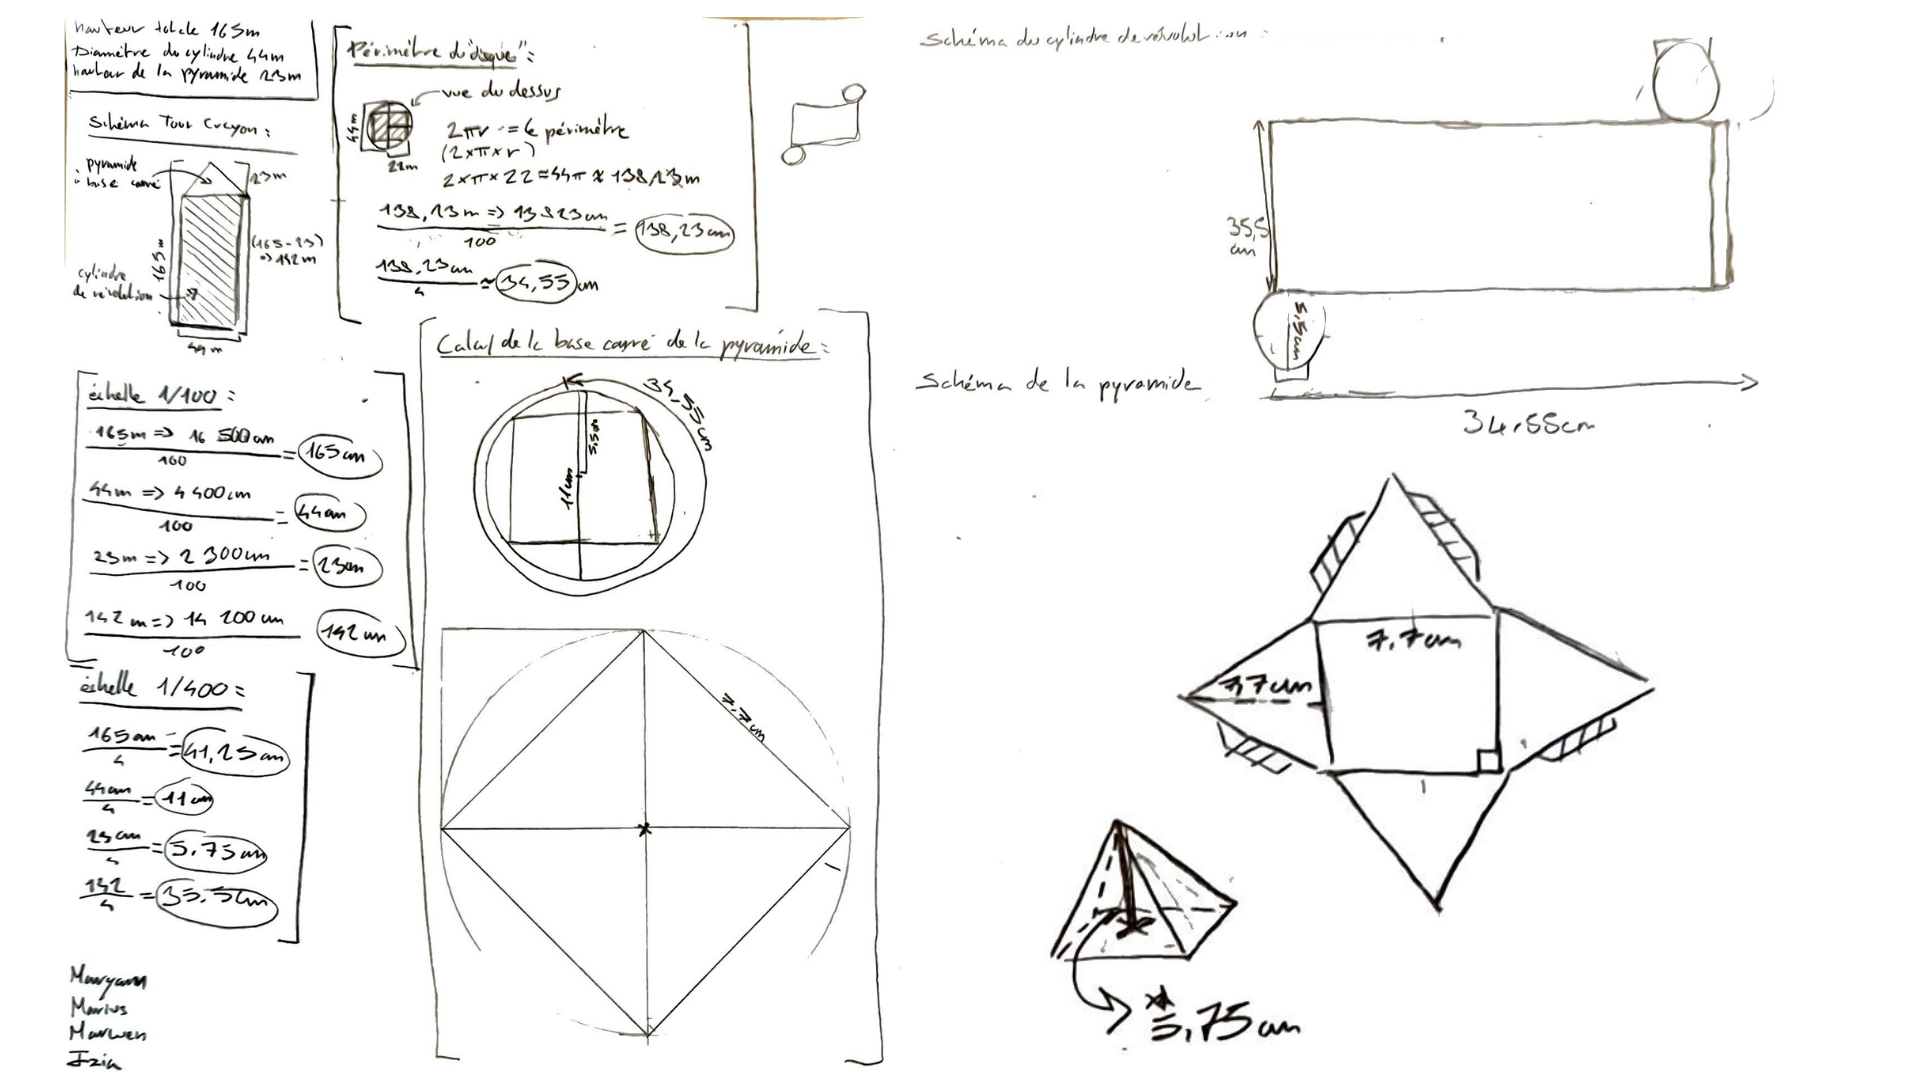 hauteur totale 165m
Diamètre du cylindre 44m
hauteur de la pyramide 23m
Schéma Tour Crayon :
pyramide
à base carré
23m
165m
(165-23)
=> 142m
cylindre
de révolution
44m
échelle 1/100 :
165m => 16 500cm
100
= 165cm
44m => 4 400cm
100
= 44cm
23m => 2 300cm
100
= 23cm
142m => 14 200cm
100
142cm
échelle 1/400 =
165cm
4
= 41,25cm
44cm
4
= 11cm
23cm
4
= 5.75cm
142
4
= 35.5cm
Maryam
Marius
Marwen
Izia
Périmètre du disque" :
vue du dessus
44m
22m
2πr = le périmètre
(2×π×r)
2×π×22 = 44π ≈ 138,23m
138,23m => 13823cm
100
= 138,23cm
138,23cm
4
≈ 34,55cm
Calcul de la base carré de la pyramide :
34,55cm
5,5cm
11cm
7.7cm
Schéma du cylindre de révolution :
35,5
cm
5,5cm
34.55cm
Schéma de la pyramide
7.7cm
7,7cm
5,75cm